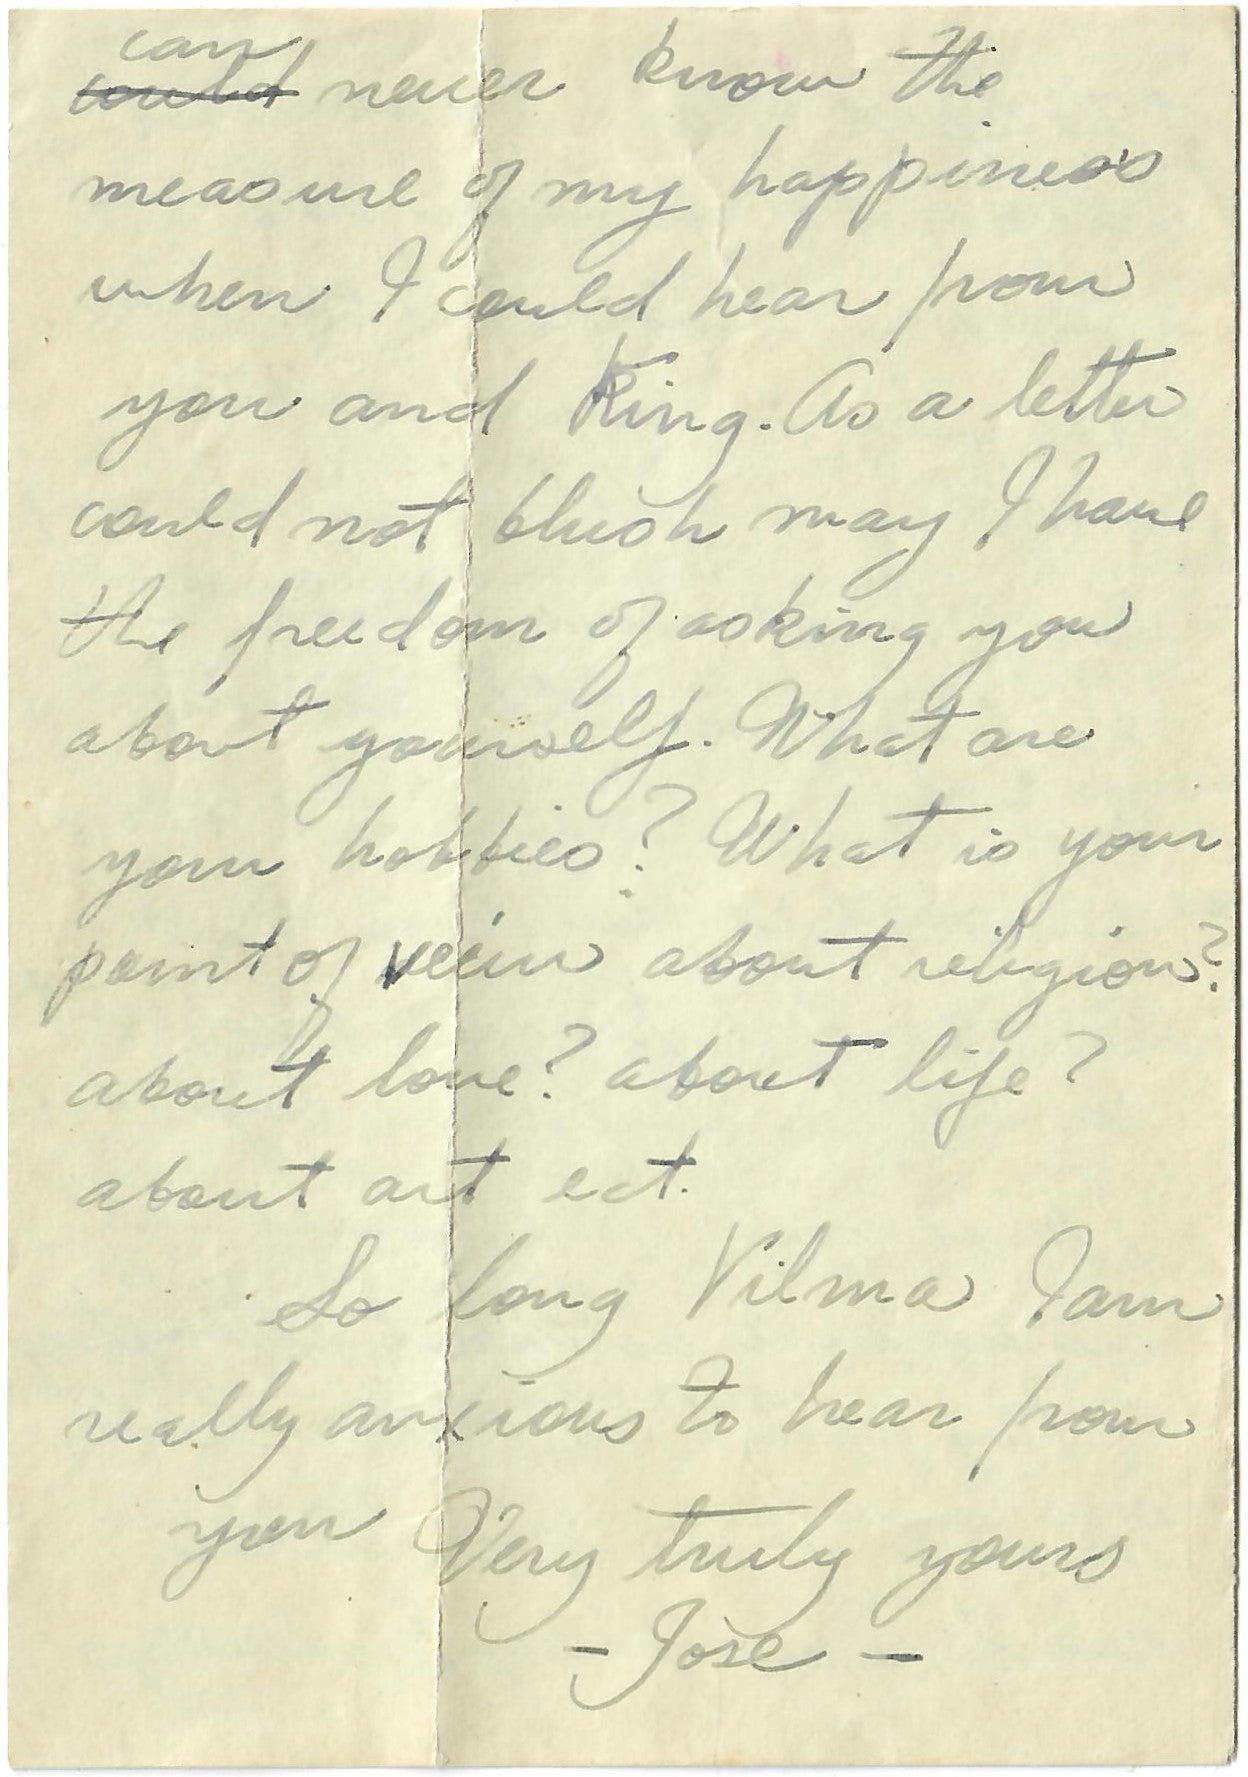 can
could never know the
measure of my happiness
when I could hear from
you and King. As a letter
could not blush may I have
the freedom of asking you
about yourself. What are
your hobbies? What is your
point of veiw about religion?
about love? about life?
about art ect.
So long Vilma I am
really anxious to hear from
you Very truly yours
- Jose -